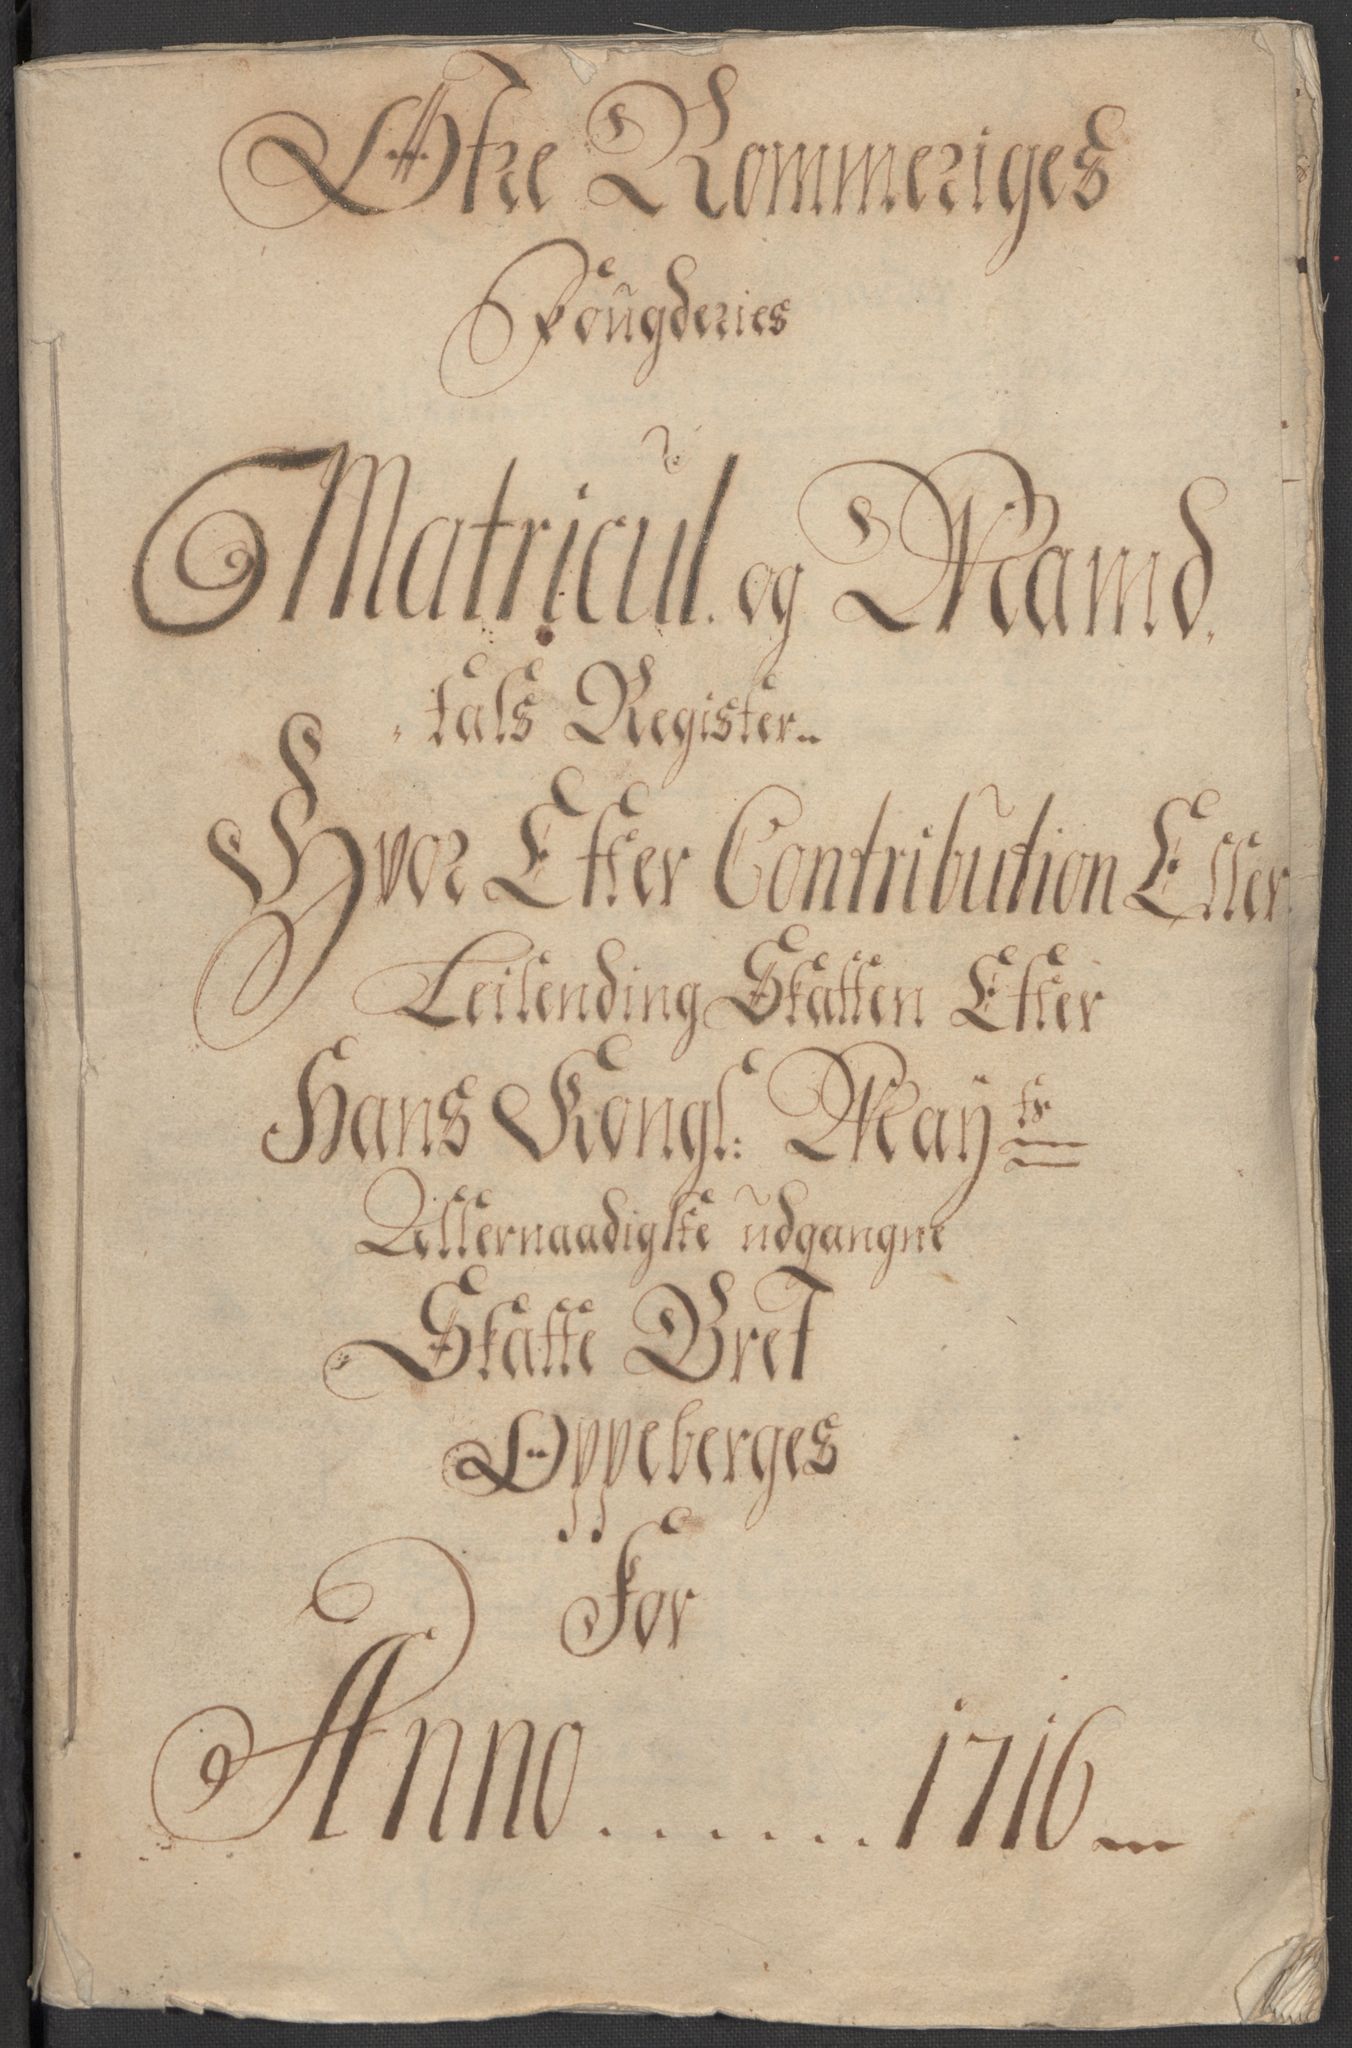 Øfre Rommeriges
Fougderies
Matricul. og Mamd.
tals Register..
Hvor Efter Contribution Eller
Leilending Skatten Efter
Hans Kongl: Mayts
Allernaadigste udgangne
Skatte Bref
Oppeberges
For
Anno ...... 1716